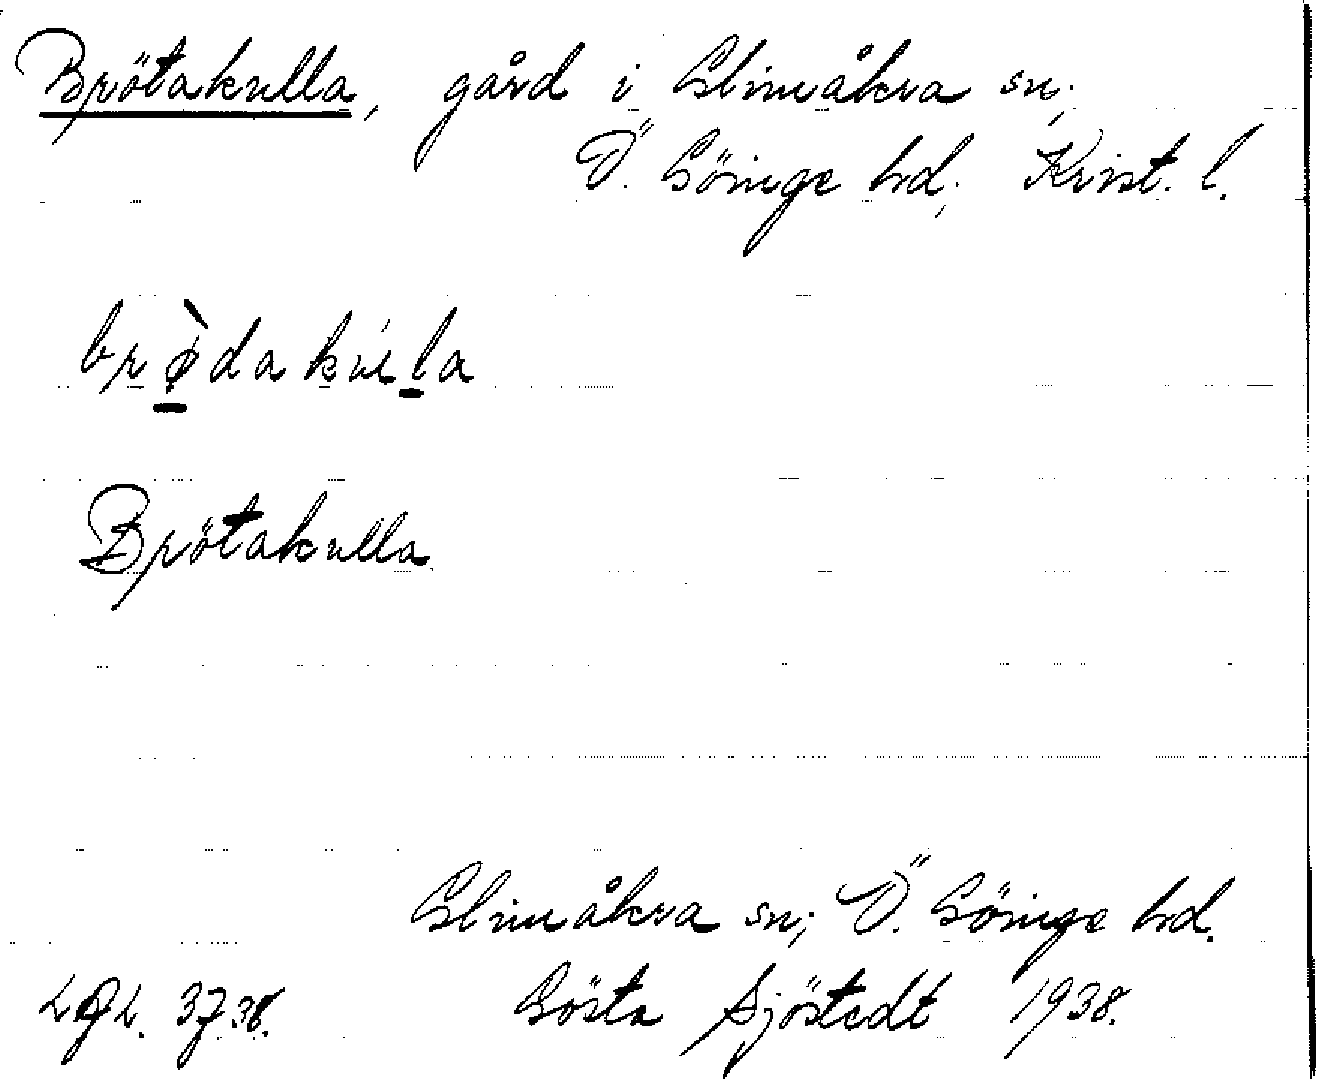 Brötakulla, gård i Glimåkra sn,
Ö. Göinge hd, Krist. l.
brø̀dakúla
Brötakulla
Glimåkra sn, Ö. Göinge hd.
37.38. Gösta Sjöstedt 1938.